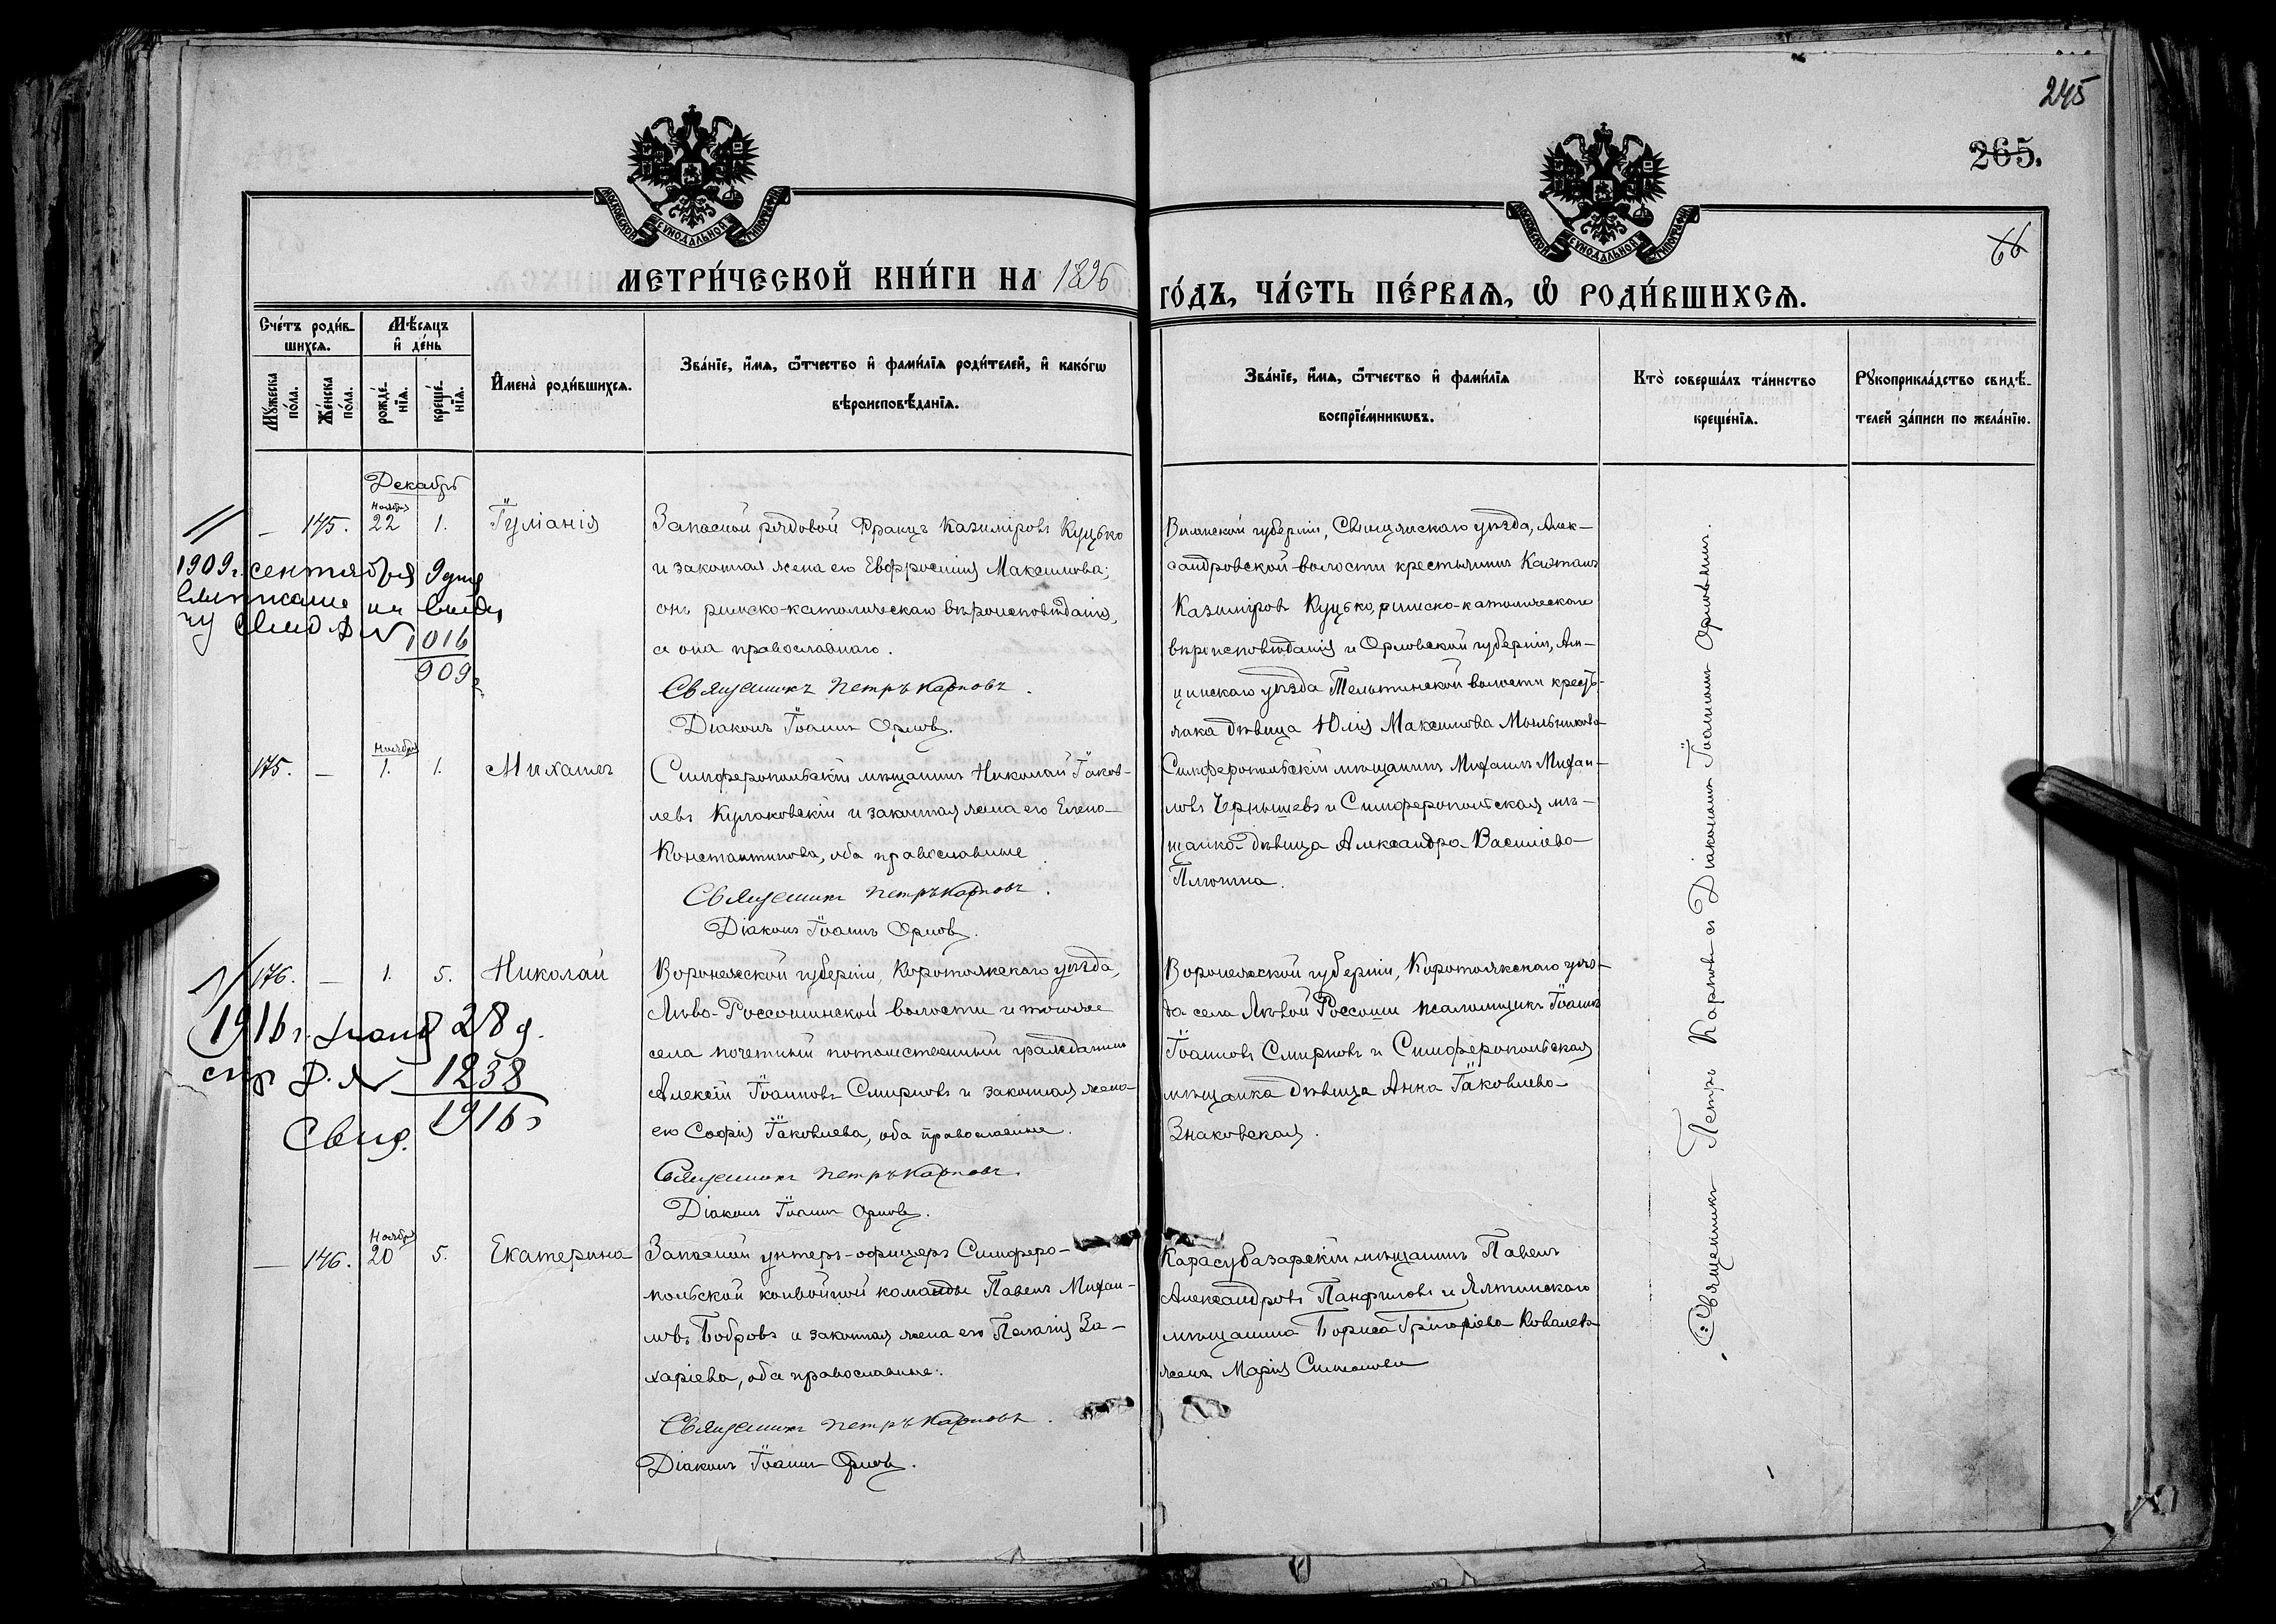 245
265.
66
МОСКОВСКОЙ СѴНОДАЛЬНОЙ ТИПОГРАФІИ
МОСКОВСКОЙ СѴНОДАЛЬНОЙ ТИПОГРАФІИ
МЕТРИ́ЧЕСКОЙ КНИ́ГИ НА 1896
ГО́ДЪ, ЧА́СТЬ ПЕ́РВАѦ, Ѡ҆ РОДИ́ВШИХСѦ.
Сче́тъ роди́в-
шихсѧ.
Мѣ́сѧцъ
и҆ де́нь
Мꙋ́жеска
по́ла.
Же́нска
по́ла.
рожде́-
нїѧ.
креще́-
нїѧ.
И҆мена̀ роди́вшихсѧ.
Зва́нїе, и҆́мѧ, ѻ҆́тчество и҆ фами́лїѧ роди́телей, и҆ како́гѡ
вѣроисповѣ́данїѧ.
Зва́нїе, и҆́мѧ, ѻ҆́тчество и҆ фами́лїѧ
воспрїе́мникѡвъ.
Кто̀ соверша́лъ та́инство
креще́нїѧ.
Рꙋкоприкла́дство свидѣ́-
телей за́писи по жела́нїю.
Декабрь
— 145. Ноября 22 1. Іуліанія
Запасной рядовой Францъ Казиміровъ Куцько
и законная жена его Евфросинія Максимова;
онъ римско-католическаго вѣроисповѣданія,
а она православнаго.
Священникъ Петръ Карповъ.
Діаконъ Іоаннъ Орловъ.
Виленской губерніи, Свенцянскаго уѣзда, Алек-
сандровской волости крестьянинъ Каэтанъ
Казиміровъ Куцько, римско-католическаго
вѣроисповѣданія и Орловской губерніи,
уѣзда Тельчинской волости кресть-
янка дѣвица Юлія Максимова Мыльникова
1909г. сентября 9 дня
1016
909
175. — Ноября 1. 1. Михаилъ
Симферопольскій мѣщанинъ Николай Іаков-
левъ Кулаковскій и законная жена его Елена
Константинова, оба православные
Священникъ Петръ Карповъ.
Діаконъ Іоаннъ Орловъ.
Симферопольскій мѣщанинъ Михаилъ Михаи-
ловъ Чернышевъ и Симферопольская мѣ-
щанка дѣвица Александра Василіева
176. — 1. 5. Николай
Воронежской губерніи, Коротоякскаго уѣзда,
Лѣво-Россошинской волости и тогоже
села почетный потомственный гражданинъ
Алексій Іоанновъ Смирновъ и законная жена
его Софія Іаковлева, оба православные.
Священникъ Петръ Карповъ.
Діаконъ Іоаннъ Орловъ.
Воронежской губерніи, Коротоякскаго уѣз-
да села Лѣвой Россоши псаломщикъ Іоаннъ
Іоанновъ Смирновъ и Симферопольская
мѣщанка дѣвица Анна Іаковлева
Знаковская.
1916 г. 28 д.
1238
1916
Свид.
— 146. Ноября 20 5. Екатерина
Запасной унтеръ-офицеръ Симферо-
польской конвойной команды Павелъ Михаи-
ловъ Бобровъ и законная жена его Пелагія За-
харіева, оба православные.
Священникъ Петръ Карповъ.
Діаконъ Іоаннъ Орловъ.
Карасубазарскій мѣщанинъ Павелъ
Александровъ Панфиловъ и Ялтинскаго
мѣщанина Бориса Григоріева Ковалева
жена Марія Симонова
Священникъ Петръ Карповъ съ Діакономъ Іоанномъ Орловымъ.